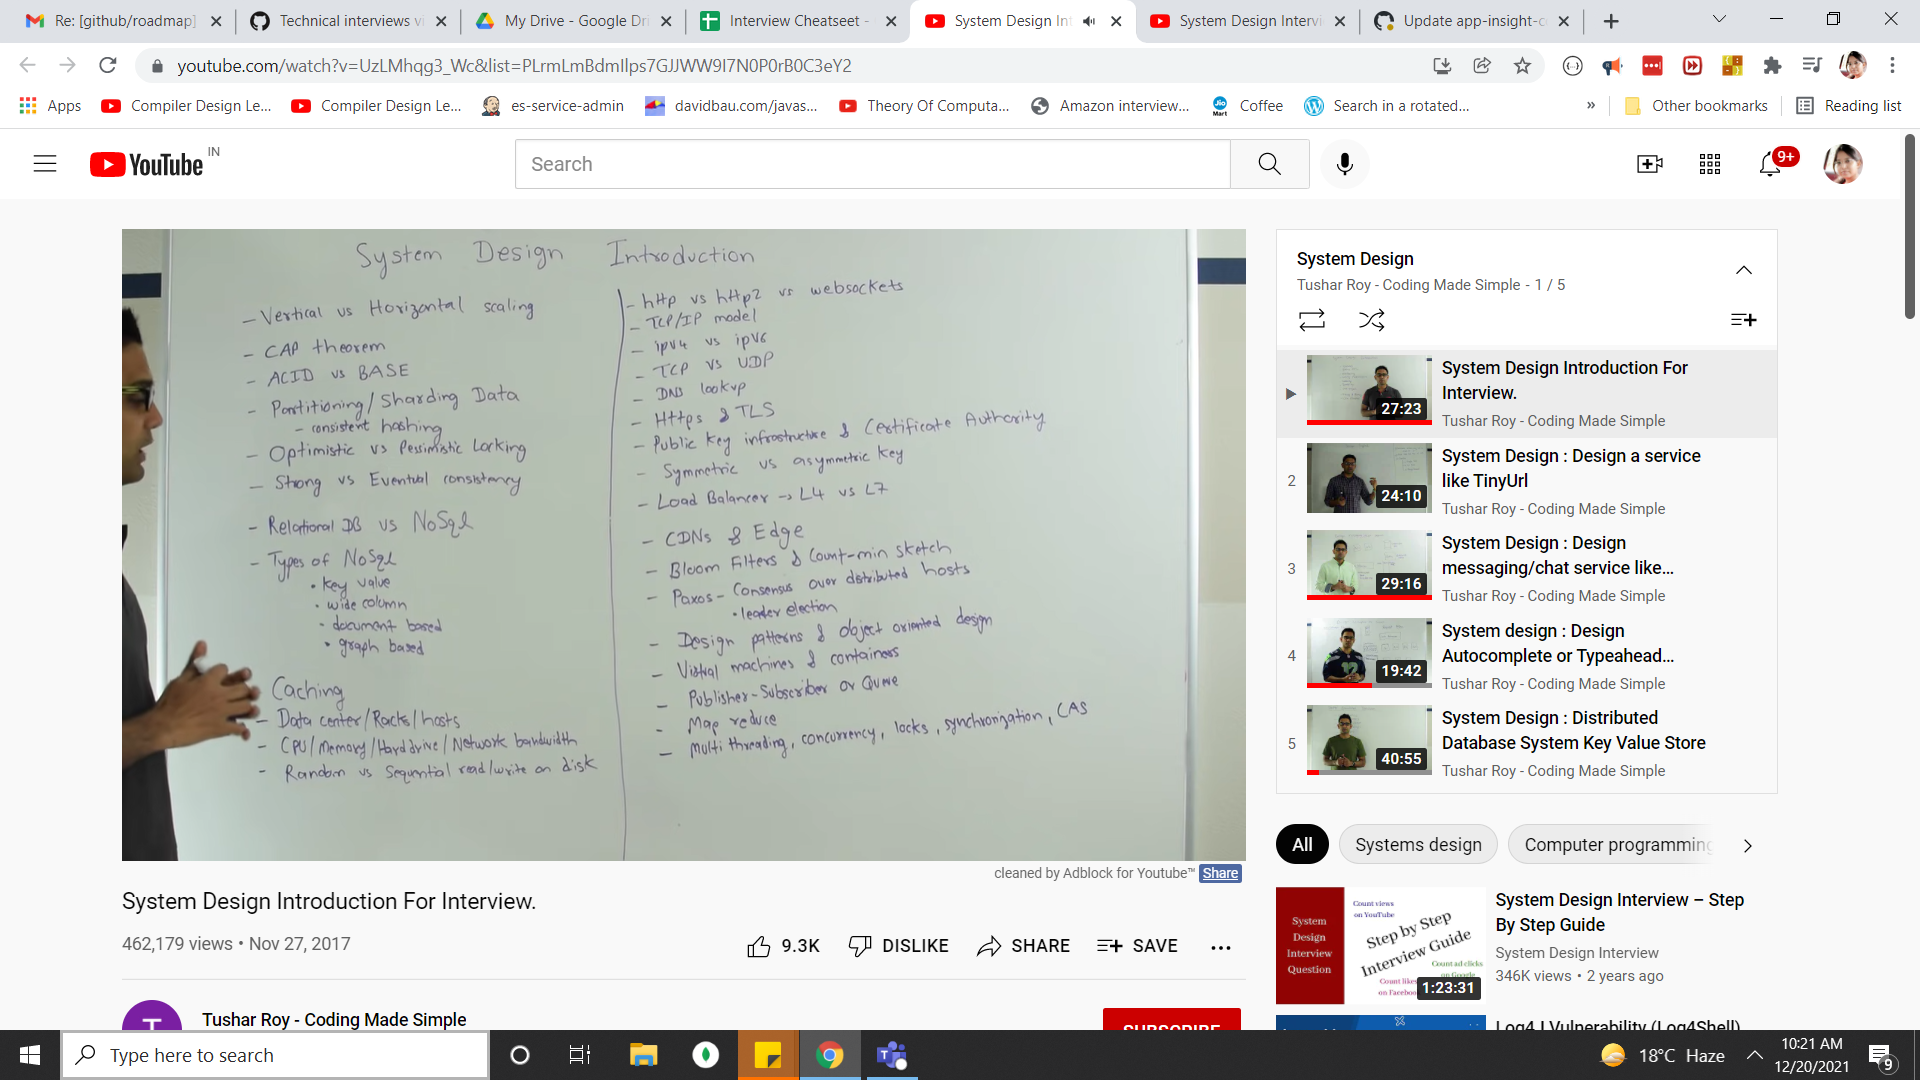 Re: [github/roadmap]
Technical interviews vi
My Drive - Google Dri
Interview Cheatseet -
System Design Int
System Design Intervi
Update app-insight-c
youtube.com/watch?v=UzLMhqg3_Wc&list=PLrmLmBdmIlps7GJJWW9I7N0P0rB0C3eY2
Apps
Compiler Design Le...
Compiler Design Le...
es-service-admin
davidbau.com/javas...
Theory Of Computa...
Amazon interview...
Coffee
Search in a rotated...
»
Other bookmarks
Reading list
YouTube IN
Search
9+
System Design Introduction
- Vertical vs Horizontal scaling
- CAP theorem
- ACID vs BASE
- Partitioning/Sharding Data
- consistent hashing
- Optimistic vs Pessimistic Locking
- Strong vs Eventual consistency
- Relational DB vs NoSql
- Types of NoSql
• key value
• wide column
• document based
• graph based
Caching
- Data center/Racks/hosts
- CPU/Memory/Harddrive/Network bandwidth
- Random vs Sequential read/write on disk
- http vs http2 vs websockets
- TCP/IP model
- ipv4 vs ipv6
- TCP vs UDP
- DNS lookup
- Https & TLS
- Public key infrastructure & Certificate Authority
- Symmetric vs asymmetric key
- Load Balancer -> L4 vs L7
- CDNs & Edge
- Bloom Filters & Count-min sketch
- Paxos - Consensus over distributed hosts
• leader election
- Design patterns & object oriented design
- Virtual machines & containers
- Publisher-Subscriber or Queue
- Map reduce
- Multi threading, concurrency, locks, synchronization, CAS
cleaned by Adblock for Youtube™ Share
System Design Introduction For Interview.
462,179 views • Nov 27, 2017
9.3K DISLIKE SHARE SAVE
T
Tushar Roy - Coding Made Simple
SUBSCRIBE
System Design
Tushar Roy - Coding Made Simple - 1 / 5
27:23
System Design Introduction For
Interview.
Tushar Roy - Coding Made Simple
2
24:10
System Design : Design a service
like TinyUrl
Tushar Roy - Coding Made Simple
3
29:16
System Design : Design
messaging/chat service like...
Tushar Roy - Coding Made Simple
4
19:42
System design : Design
Autocomplete or Typeahead...
Tushar Roy - Coding Made Simple
5
40:55
System Design : Distributed
Database System Key Value Store
Tushar Roy - Coding Made Simple
All
Systems design
Computer programming
System
Design
Interview
Question
Count views
on YouTube
Step by Step
Interview Guide
Count ad clicks
on Google
Count likes
on Facebook
1:23:31
System Design Interview – Step
By Step Guide
System Design Interview
346K views • 2 years ago
Log4J Vulnerability (Log4Shell)
Type here to search
18°C Haze
10:21 AM
12/20/2021
9